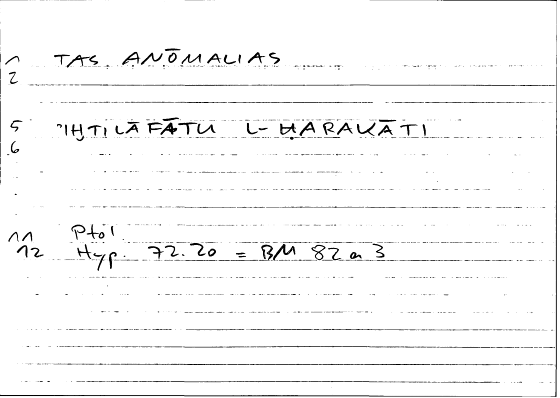 1 TAS ANŌMALIAS
2
5 ʾIḪTILĀFĀTU L-ḤARAKĀTI
6
11 Ptol
12 Hyp. 72.20 = BM 82 a 3